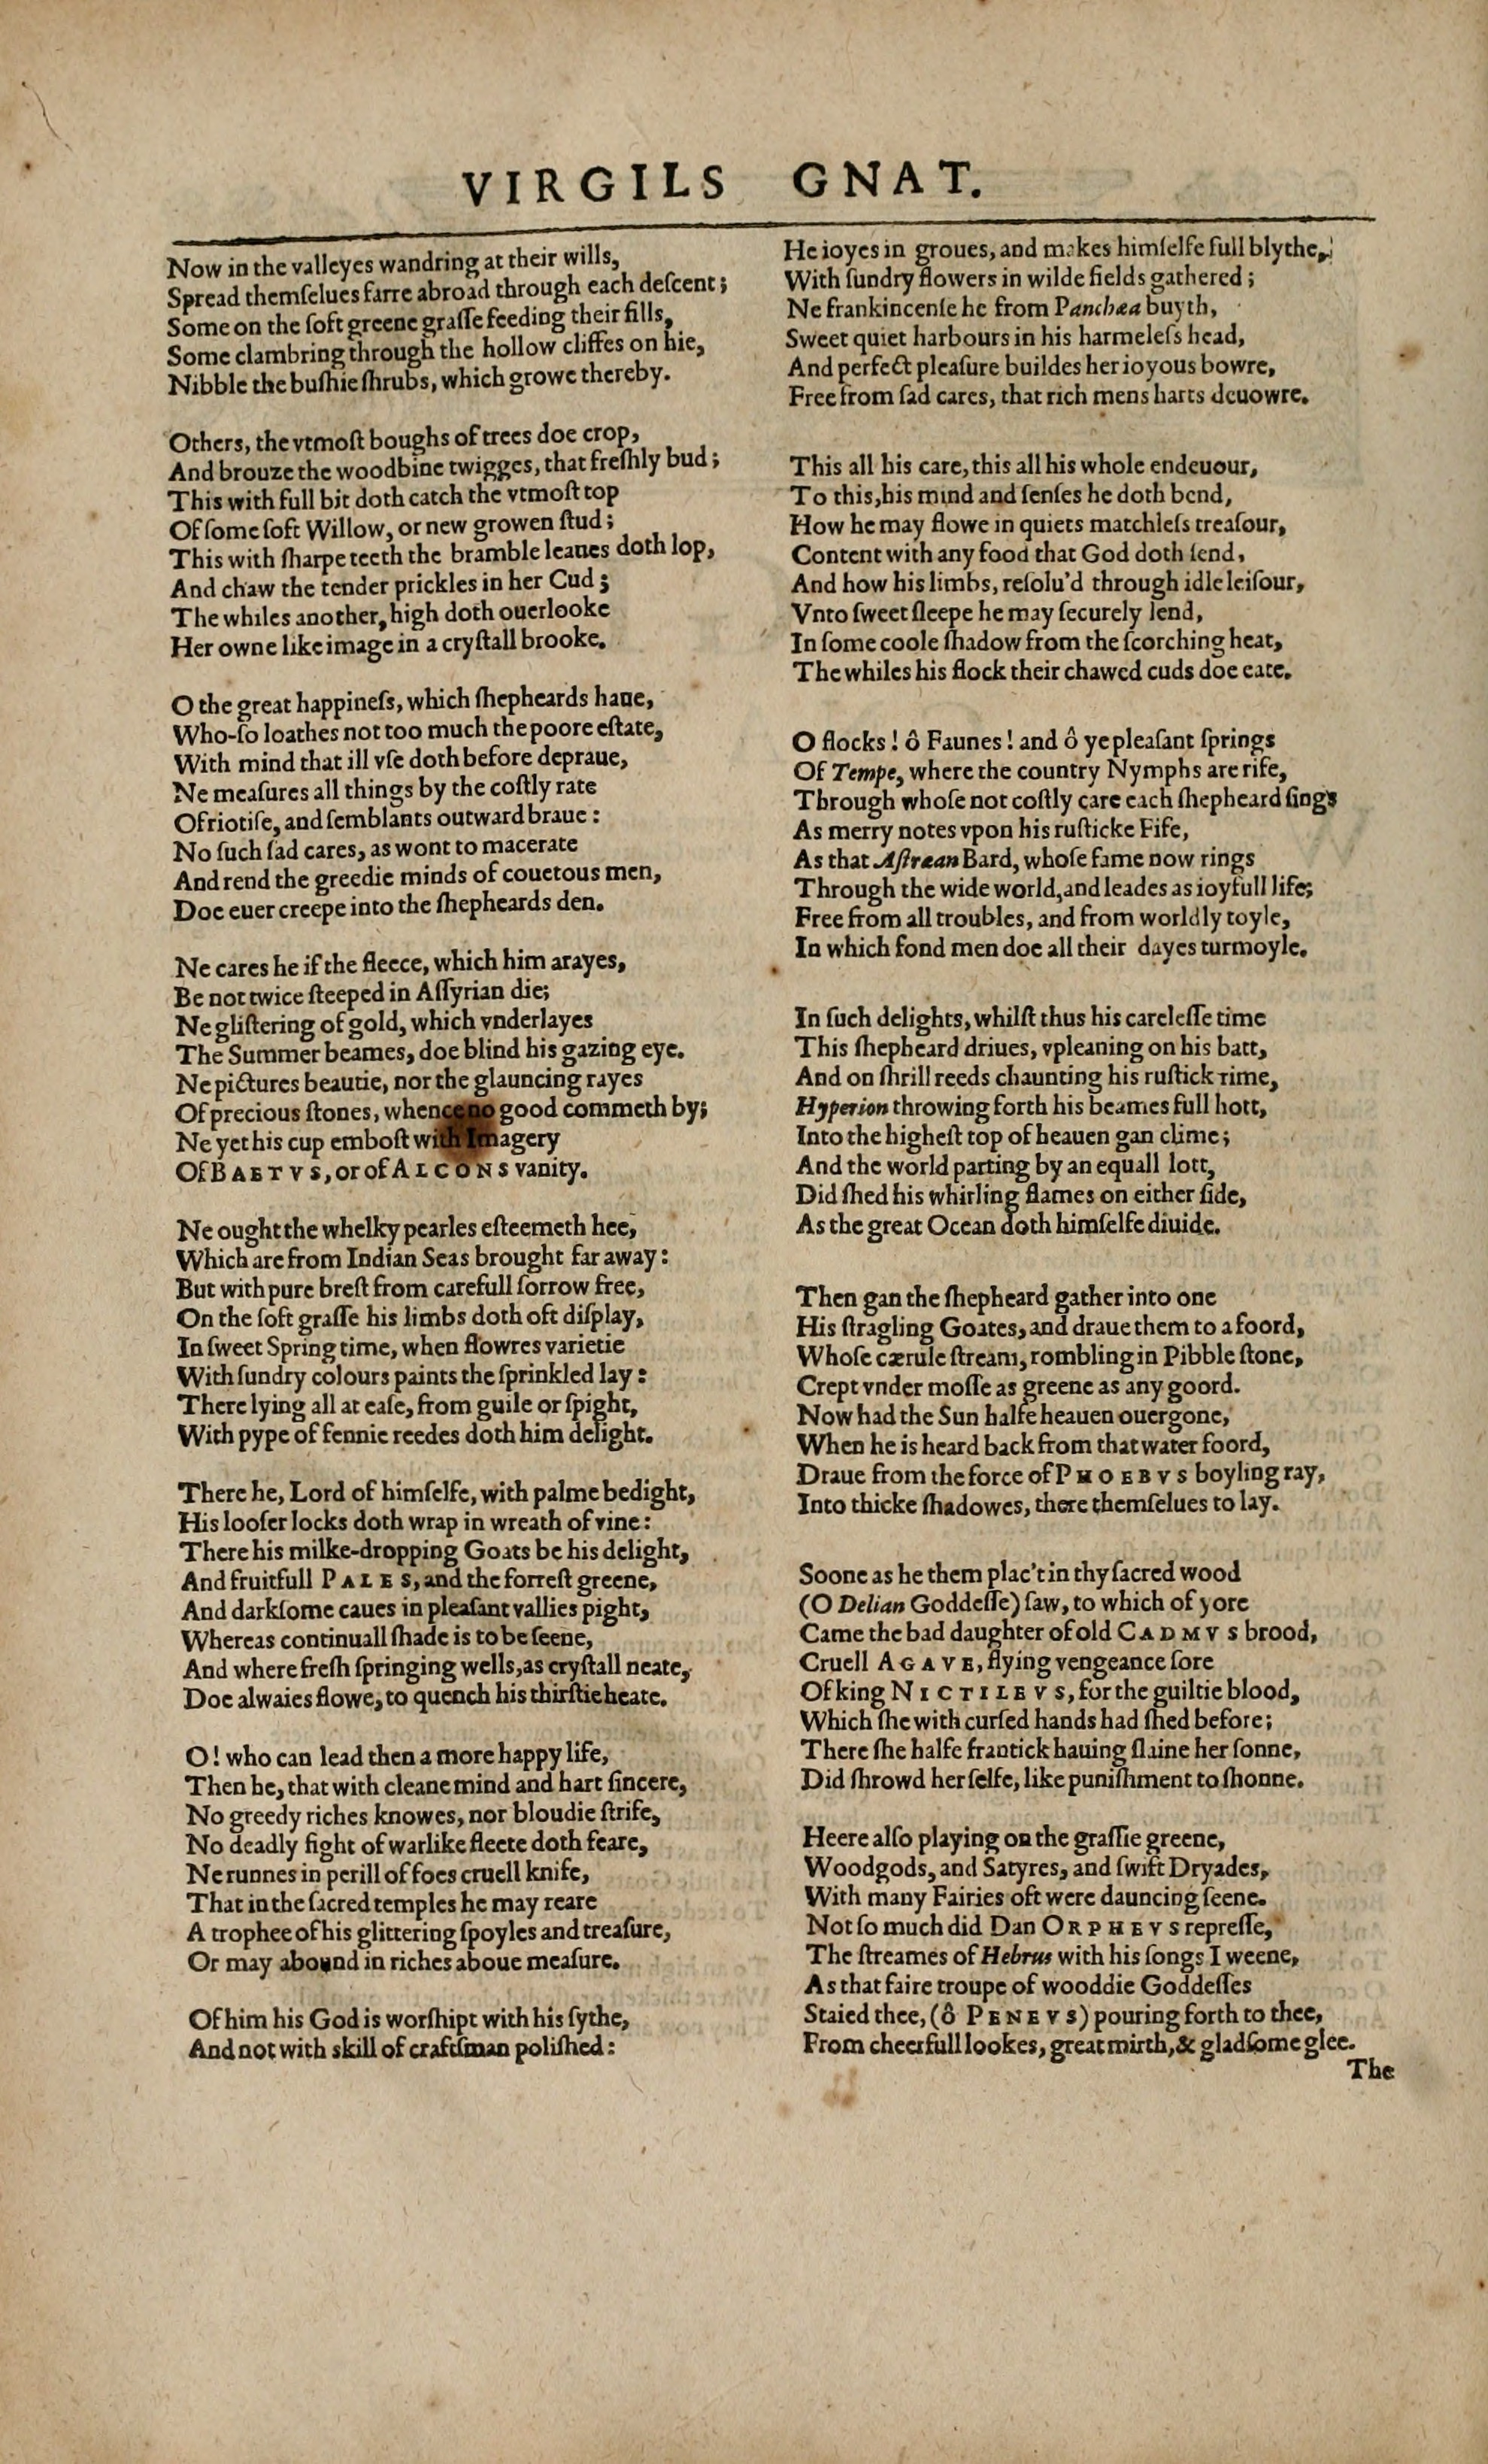 VIRGILS GNAT.
Now in the valleyes wandring at their wills,
Spread themſelues farre abroad through each deſcent;
Some on the ſoft greene graſſe feeding their fills,
Some clambring through the hollow cliffes on hie,
Nibble the buſhie ſhrubs, which growe thereby.
Others, the vtmoſt boughs of trees doe crop,
And brouze the woodbine twigges, that freſhly bud;
This with full bit doth catch the vtmoſt top
Of ſome ſoft Willow, or new growen ſtud;
This with ſharpe teeth the bramble leaues doth lop,
And chaw the tender prickles in her Cud;
The whiles another, high doth ouerlooke
Her owne like image in a cryſtall brooke.
O the great happineſs, which ſhepheards haue,
Who-ſo loathes not too much the poore eſtate,
With mind that ill vſe doth before depraue,
Ne meaſures all things by the coſtly rate
Of riotiſe, and ſemblants outward braue:
No ſuch ſad cares, as wont to macerate
And rend the greedie minds of couetous men,
Doe euer creepe into the ſhepheards den.
Ne cares he if the fleece, which him arayes,
Be not twice ſteeped in Aſſyrian die;
Ne gliſtering of gold, which vnderlayes
The Summer beames, doe blind his gazing eye.
Ne pictures beautie, nor the glauncing rayes
Of precious ſtones, whence no good commeth by;
Ne yet his cup emboſt with Imagery
Of BAETVS, or of ALCONS vanity.
Ne ought the whelky pearles eſteemeth hee,
Which are from Indian Seas brought far away:
But with pure breſt from carefull ſorrow free,
On the ſoft graſſe his limbs doth oft diſplay,
In ſweet Spring time, when flowres varietie
With ſundry colours paints the ſprinkled lay:
There lying all at eaſe, from guile or ſpight,
With pype of fennie reedes doth him delight.
There he, Lord of himſelfe, with palme bedight,
His looſer locks doth wrap in wreath of vine:
There his milke-dropping Goats be his delight,
And fruitfull PALES, and the forreſt greene,
And darkſome caues in pleaſant vallies pight,
Whereas continuall ſhade is to be ſeene,
And where freſh ſpringing wells, as cryſtall neate,
Doe alwaies flowe, to quench his thirſtie heate.
O! who can lead then a more happy life,
Then he, that with cleane mind and hart ſincere,
No greedy riches knowes, nor bloudie ſtrife,
No deadly fight of warlike fleete doth feare,
Ne runnes in perill of foes cruell knife,
That in the ſacred temples he may reare
A trophee of his glittering ſpoyles and treaſure,
Or may abound in riches aboue meaſure.
Of him his God is worſhipt with his ſythe,
And not with skill of craftſman poliſhed:
He ioyes in groues, and makes himſelfe full blythe,
With ſundry flowers in wilde fields gathered;
Ne frankincenſe he from Panchæa buyth,
Sweet quiet harbours in his harmeleſs head,
And perfect pleaſure buildes her ioyous bowre,
Free from ſad cares, that rich mens harts deuowre.
This all his care, this all his whole endeuour,
To this, his mind and ſenſes he doth bend,
How he may flowe in quiets matchleſs treaſour,
Content with any food that God doth ſend,
And how his limbs, reſolu'd through idle leiſour,
Vnto ſweet ſleepe he may ſecurely lend,
In ſome coole ſhadow from the ſcorching heat,
The whiles his flock their chawed cuds doe eate.
O flocks! ô Faunes! and ô ye pleaſant ſprings
Of Tempe, where the country Nymphs are rife,
Through whoſe not coſtly care each ſhepheard ſings
As merry notes vpon his ruſticke Fife,
As that Aſtræan Bard, whoſe fame now rings
Through the wide world, and leades as ioyfull life;
Free from all troubles, and from worldly toyle,
In which fond men doe all their dayes turmoyle.
In ſuch delights, whilſt thus his careleſſe time
This ſhepheard driues, vpleaning on his batt,
And on ſhrill reeds chaunting his ruſtick rime,
Hyperion throwing forth his beames full hott,
Into the higheſt top of heauen gan clime;
And the world parting by an equall lott,
Did ſhed his whirling flames on either ſide,
As the great Ocean doth himſelfe diuide.
Then gan the ſhepheard gather into one
His ſtragling Goates, and draue them to a foord,
Whoſe cærule ſtream, rombling in Pibble ſtone,
Crept vnder moſſe as greene as any goord.
Now had the Sun halfe heauen ouergone,
When he is heard back from that water foord,
Draue from the force of PHOEBVS boyling ray,
Into thicke ſhadowes, there themſelues to lay.
Soone as he them plac't in thy ſacred wood
(O Delian Goddeſſe) ſaw, to which of yore
Came the bad daughter of old CADMVS brood,
Cruell AGAVE, flying vengeance ſore
Of king NICTILEVS, for the guiltie blood,
Which ſhe with curſed hands had ſhed before;
There ſhe halfe frantick hauing ſlaine her ſonne,
Did ſhrowd her ſelfe, like puniſhment to ſhonne.
Heere alſo playing on the graſſie greene,
Woodgods, and Satyres, and ſwift Dryades,
With many Fairies oft were dauncing ſeene.
Not ſo much did Dan ORPHEVS repreſſe,
The ſtreames of Hebrus with his ſongs I weene,
As that faire troupe of wooddie Goddeſſes
Staied thee, (ô PENEVS) pouring forth to thee,
From cheerfull lookes, great mirth, & gladſome glee.
The